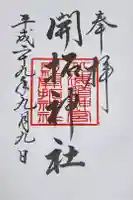 奉拝
開拓神社
平成二十九年九月九日